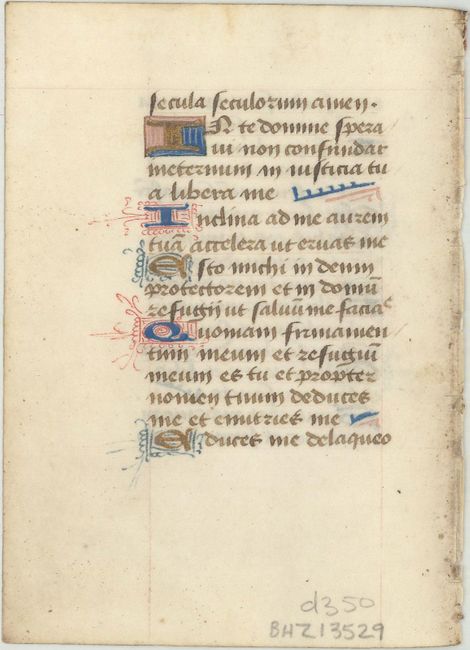 secula seculorum amen.
IN te domine spera
ui non confundar
ineternum in iusticia tu
a libera me
Inclina ad me aurem
tuã accelera ut eruas me
Esto michi in deum
protectorem et in domũ
refugii ut saluũ me facias
Quoniam firmamen
tum meum et refugiũ
meum es tu et propter
nomen tuum deduces
me et enutries me
Educes me delaqueo
d350
BHZ13529